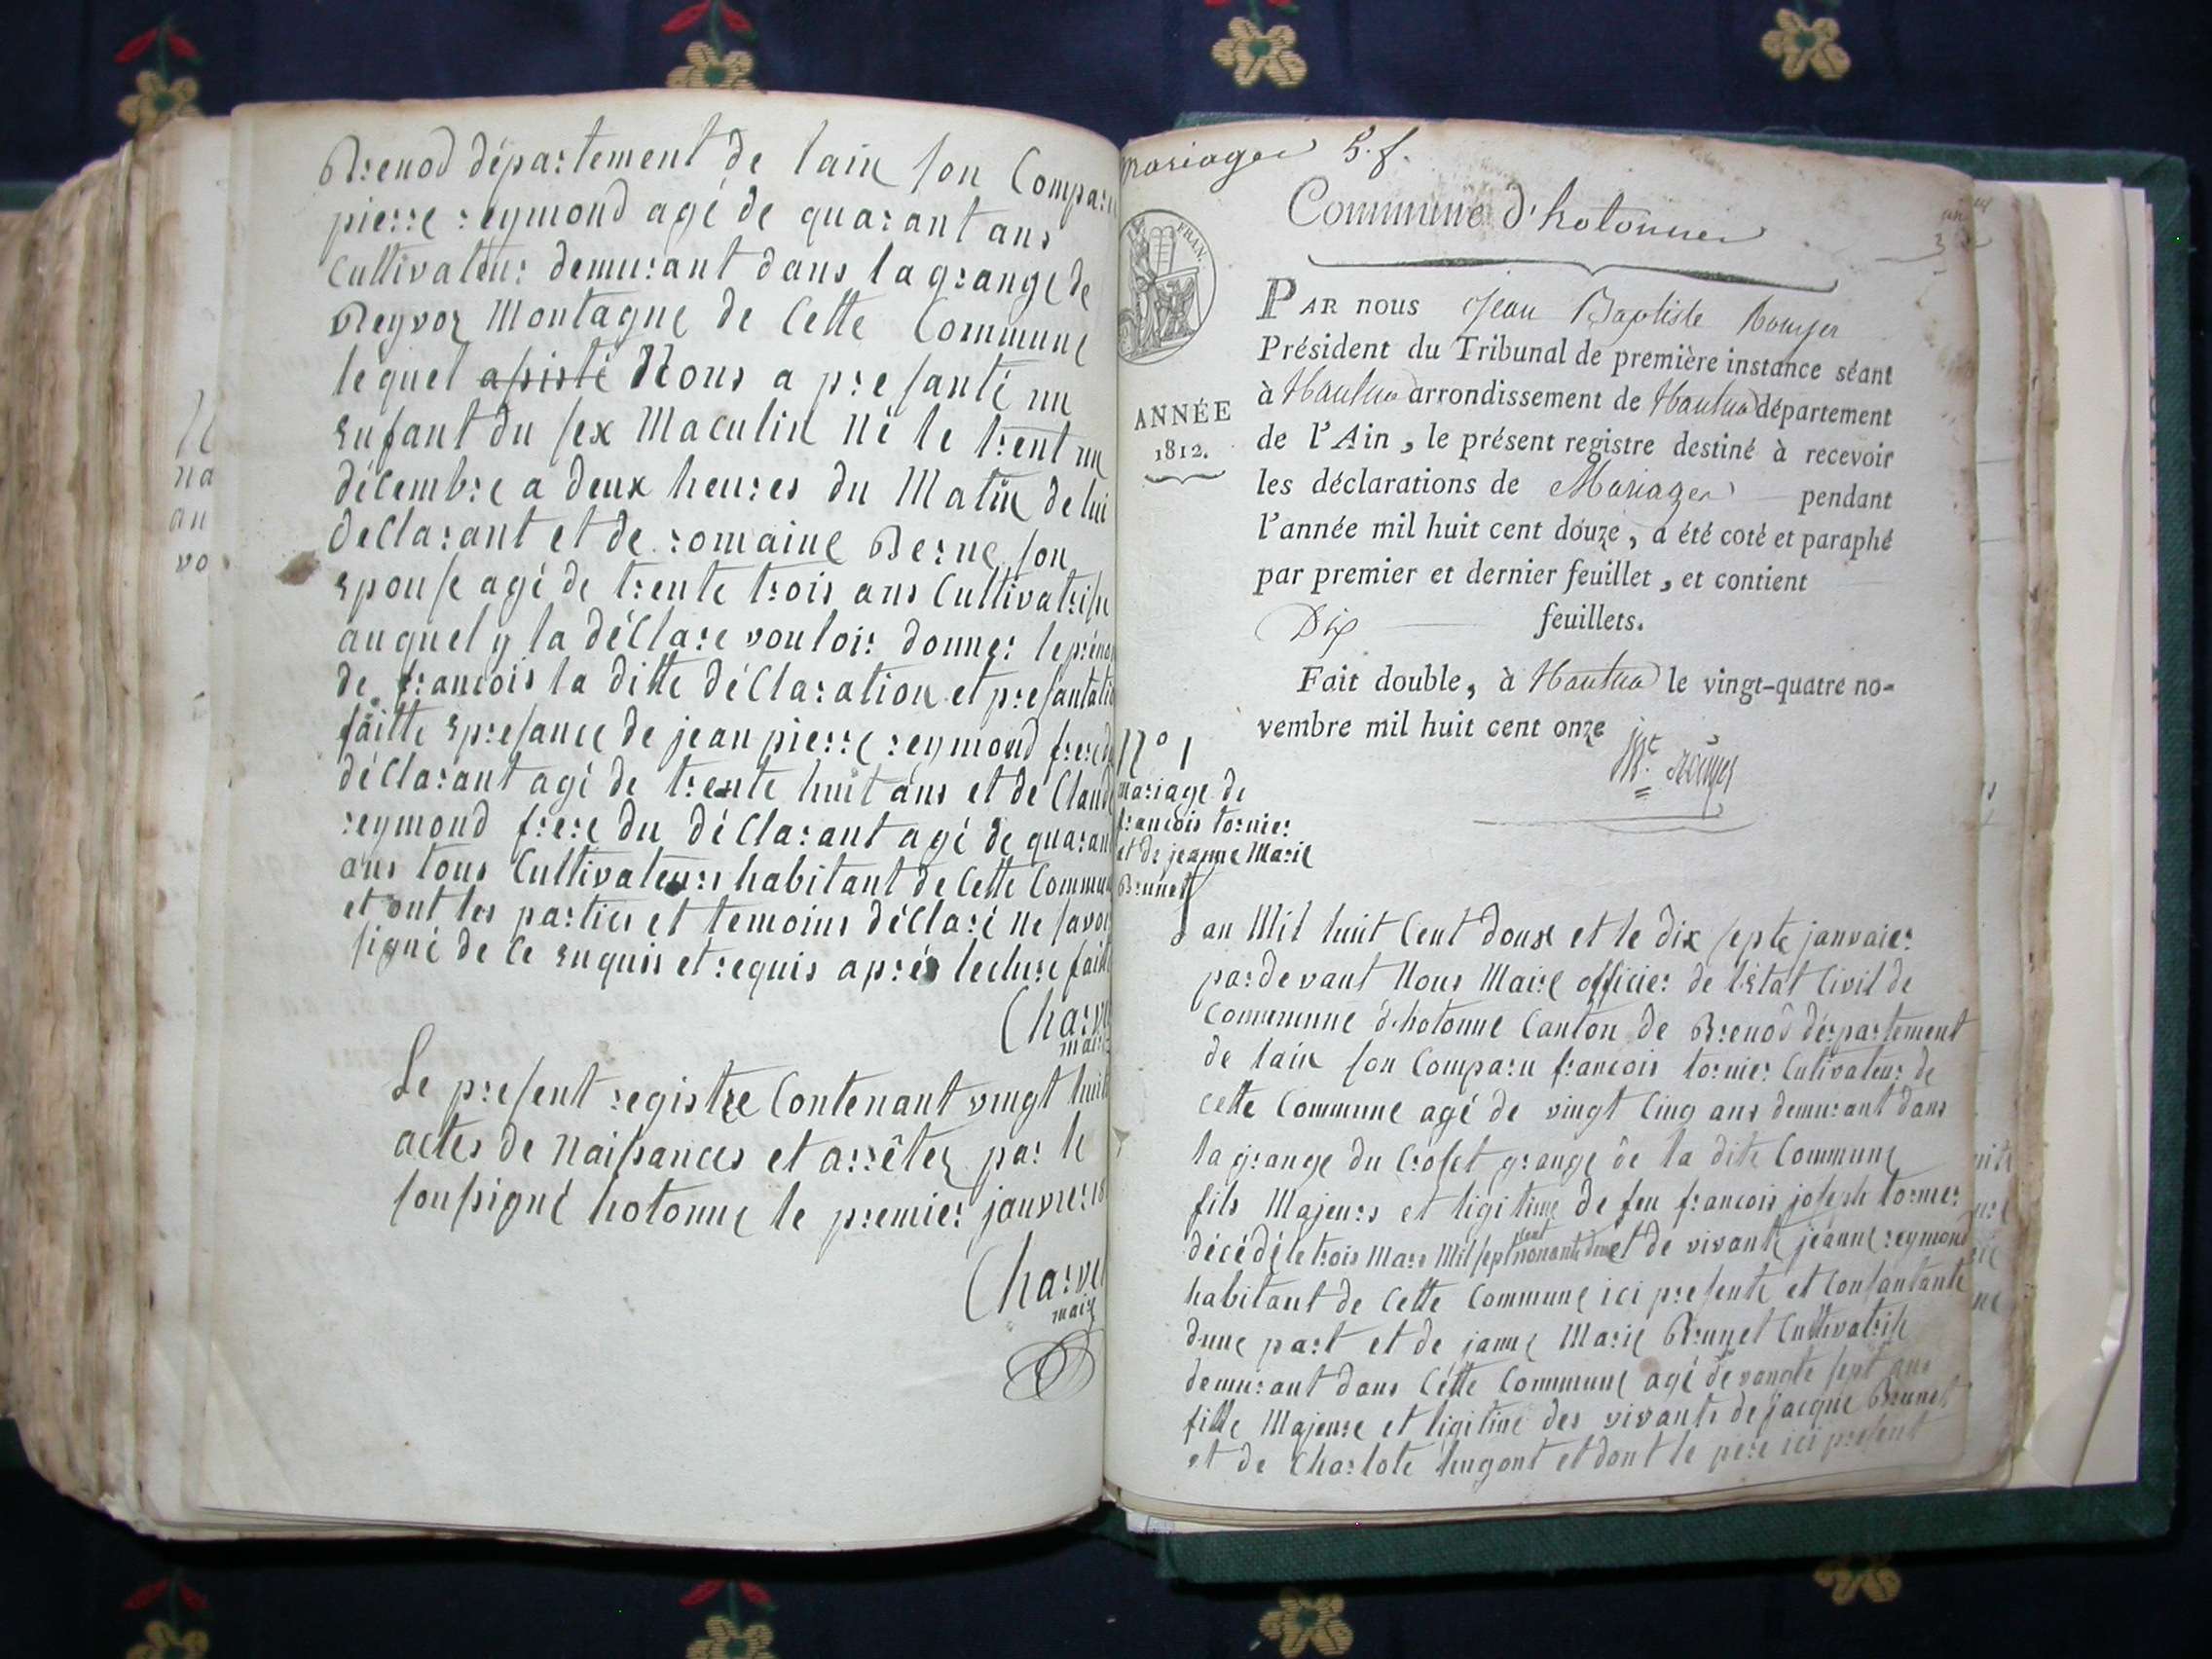 Brenod département de lain son Compar
pierre reymond agé de quarant ans
Cultivateur demurant dans la grange de
Reyvoz Montagne de Cette Commune
lequel assisté Nous a presanté un
enfant du sex Maculin né le trent un
décembre a deux heures du Matin de lui
declarant et de romaine Berne son
epouse agé de trente trois ans Cultivatrise
auquel y la déclare vouloir donner leprénom
de francois la ditte déclaration et presantati
faitte epresance de jean pierre reymond frere d
déclarant agé de trente huit ans et de Claude
reymond frere du déclarant agé de quaran
ans tous Cultivateurs habitant de Cette Commun
et ont les parties et temoins déclaré ne savoi
signé de Ce enquis et requis aprés lecture faitt
Charve
maire
Le present registre Contenant vingt huit
actes de naissances et arrêtez par le
soussigné hotonne le premier janvier 18
Charve
maire
N
na
an
vo
mariages 5. f.
Commune d'hotonnes
FRAN.
ANNÉE
1812.
PAR nous Jean Baptiste
Président du Tribunal de première instance séant
à Nantua arrondissement de Nantua département
de l'Ain, le présent registre destiné à recevoir
les déclarations de Mariages pendant
l'année mil huit cent douze, a été coté et paraphé
par premier et dernier feuillet, et contient
Dix feuillets.
Fait double, à Nantua le vingt-quatre no-
vembre mil huit cent onze
N° 1
mariage de
francois tornier
et de jeanne Marie
Brunet
an Mil huit Cent douse et le dix septe janvaier
pardevant Nous Maire officier de létat Civil de
Commune d'hotonne Canton de Brenod département
de lain son Comparu francois tornier Cultivateur de
cette Commune agé de vingt Cinq ans demurant dans
la grange du Croset grange de la dite Commune
fils Majeurs et ligitime de feu francois joseph tornier
décédé le trois Mars Mil sept cent nonante deux et de vivante jeanne reymond
habitant de Cette Commune ici presente et Consantante
dune part et de janne Marie Brunet Cultivatrise
demurant dans Cette Commune agé de vangte sept ans
fille Majeure et ligitime des vivants de jacque Brunet
et de Charlote hugont et dont le pere ici present